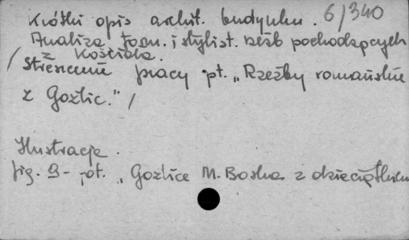 Krótki opis archit. budynku. 6/340
Analiza form. i stylist. rzeźb pochodzących
z Kościoła.
/ Streszczenie pracy pt. „Rzeźby romańskie
z Goźlic." /
Ilustracje.
fig. 9 - pt. „Goźlice M. Boska z dzieciątkiem